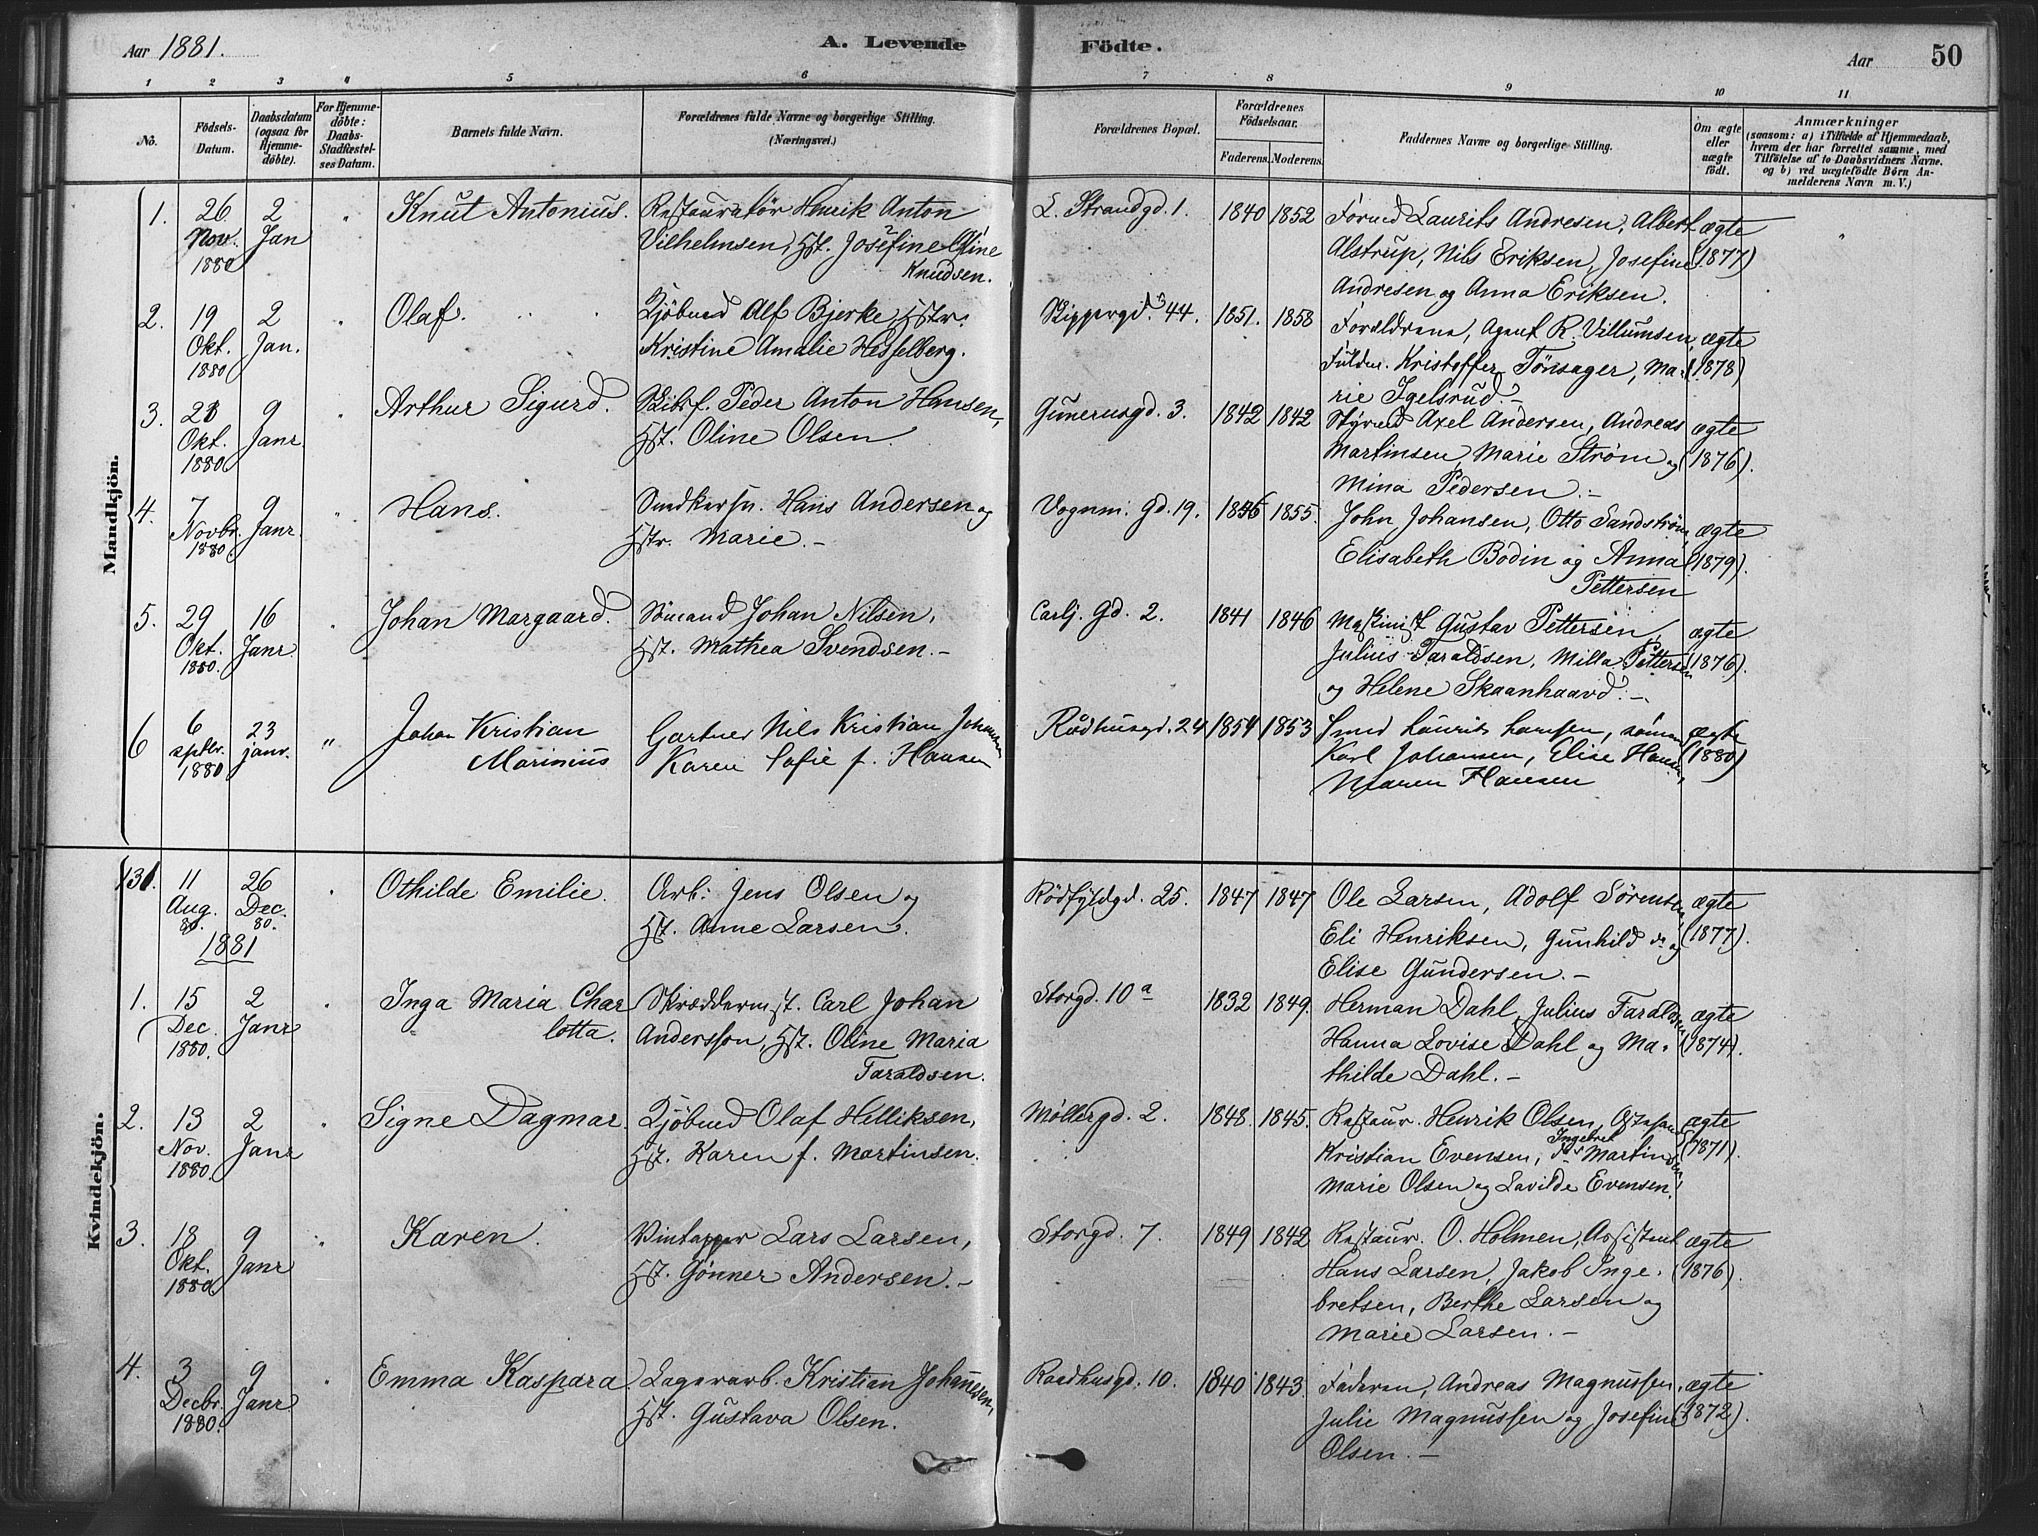 Aar 1881.
A. Levende Födte.
Aar
50
1 2 3 4 5 6 7 8 9 10 11
No.
Födsels-Datum.
Daabsdatum (ogsaa for Hjemmedöbte).
For Hjemmedöbte: Daabs-Stadfæstelses Datum.
Barnets fulde Navn.
Forældrenes fulde Navne og borgerlige Stilling.
(Næringsvei.)
Forældrenes Bopæl.
Forældrenes Födselsaar.
Faderens. Moderens.
Faddernes Navne og borgerlige Stilling.
Om ægte eller uægte födt.
Anmærkninger
(saasom: a) i Tilfælde af Hjemmedaab, hvem der har forrettet samme, med Tilföielse af to Daabsvidners Navne. og b) ved uægtefödte Börn Anmelderens Navn m. V.)
Mandkjön.
1. 26 Nov. 1880 2 Jan " Knut Antonius. Restauratör Henrik Anton
Vilhelmsen, Hst. Josefine Gine
Knudsen.
L. Strandgd. 1. 1840 1852 Formd Laurits Andresen, Albert
Alstrup, Nils Eriksen, Josefine
Andresen og Anna Eriksen.
ægte (1877) "
2. 19 Okt. 1880 2 Jan. " Olaf. Kjöbmd Alf Bjerke, Hstr.
Kristine Amalie Hesselberg.
Skippergd. 44. 1851. 1858 Forældrene, Agent R. Villumsen,
Fuldm. Kristoffer Tönsager, Ma-
rie Igelsrud.-
ægte (1878)
3. 21 Okt. 1880 9 Janr " Arthur Sigurd. Skibsf. Peder Anton Hansen,
Hst. Oline Olsen
Gunerusgd. 3. 1842 1842 Styrmd Axel Andersen, Andreas
Martinsen, Marie Strøm og
Mina Pedersen.-
ægte (1876).
4. 7 Novbr. 1880 9 Janr. " Hans. Smedkersv. Hans Andersen og
Hstr. Marie.-
Vognm. Gd. 19. 1856 1855. John Johansen, Otto Sandström
Elisabeth Bodin og Anna
Pettersen
ægte (1879).
5. 29 Okt. 1880. 16 Janr. " Johan Margaard. Sömand Johan Nilsen,
Hst. Mathea Svendsen.-
Carlj. Gd. 2. 1841 1846 Maskinist Gustav Pettersen,
Julius Taraldsen, Milla Pettersen
og Helene Skaanhaavd.-
ægte (1876).
6 6 septbr. 1880 23 janr. " Johan Kristian
Marinius
Gartner Nils Kristian Johansen
Karen Sofie f. Hansen
Rådhusgd. 24 1854 1853 Smed Laurits Hansen, sömand
Karl Johansen, Elise Hansen,
Maren Hansen
ægte (1880)
Kvindekjön.
131. 11 Aug. 80. 26 Dec. 80. " Othilde Emilie. Arb: Jens Olsen og
Hst. Anne Larsen.
Rödfyldgd. 25. 1847 1847 Ole Larsen, Adolf Sörensen
Eli Henriksen, Gunhild do og
Elise Gundersen.-
ægte (1877).
1881
1. 15 Dec. 1880. 2 Janr " Inga Maria Char
lotta.
Skræddermst. Carl Johan
Andersson, Hst. Oline Maria
Taraldsen.
Storgd. 10a 1832 1849. Herman Dahl, Julius Taraldsen
Hanna Lovise Dahl og Ma-
thilde Dahl.-
ægte (1874).
2. 13 Nov. 1880 2 Janr " Signe Dagmar. Kjöbmd Olaf Helliksen,
Hst. Karen f. Martinsen.
Möllergd. 2. 1848. 1845. Restaur. Henrik Olsen,
Kristian Evensen, Ingebret Martinsen
Marie Olsen og Lavilde Evensen.
ægte (1871).
3. 18 Okt. 1880 9 Janr " Karen. Vintapper Lars Larsen,
Hst. Gönner Andersen.-
Storgd. 7. 1849 1842 Restaur. O. Holmen, Assistent
Hans Larsen, Jakob Inge-
bretsen, Berthe Larsen og
Marie Larsen.-
ægte (1876).
4. 3 Decbr. 1880. 9 Janr " Emma Kaspara. Lagerarb. Kristian Johannesen,
Hst. Gustava Olsen.
Raadhusgd. 10. 1840 1843. Faderen, Andreas Magnussen.
Julie Magnussen og Josefine
Olsen.-
ægte (1872).